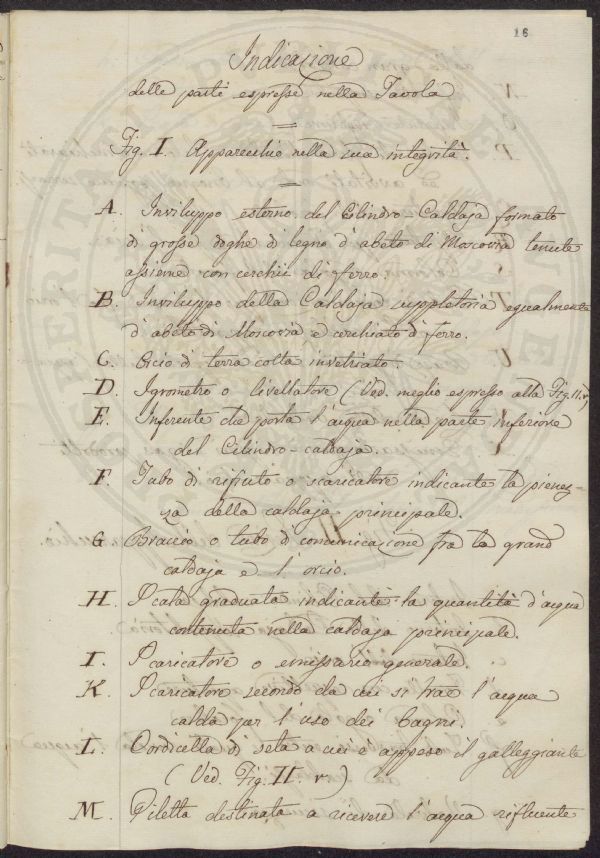 16
Indicazione
delle parti espresse nella Tavola
Fig. I. Apparecchio nella sua integrità.
A. Inviluppo esterno del Cilindro-Caldaja formato
di grosse doghe di legno d'abete di Moscovia tenute
assieme con cerchii di ferro.
B. Inviluppo della Caldaja suppletoria egualmente
d'abete di Moscovia e cerchiato di ferro.
C. Orcio di terra cotta invetriato.
D. Igrometro o livellatore (Ved. meglio espresso alla Fig. II. v)
E. Inferente che porta l'acqua nella parte inferiore
del Cilindro-caldaja.
F. Tubo di rifiuto o scaricatore indicante la pienez-
za della caldaja principale.
G Braccio o tubo di comunicazione fra la grand
caldaja e l'orcio.
H. Scala graduata indicante la quantità d'acqua
contenuta nella caldaja principale.
I. Scaricatore o emissario generale.
K. Scaricatore secondo da cui si trae l'acqua
calda per l'uso dei bagni.
L. Cordicella di seta a cui è appeso il galleggiante
(Ved. Fig. II. v)
M. Piletta destinata a ricevere l'acqua rifluente